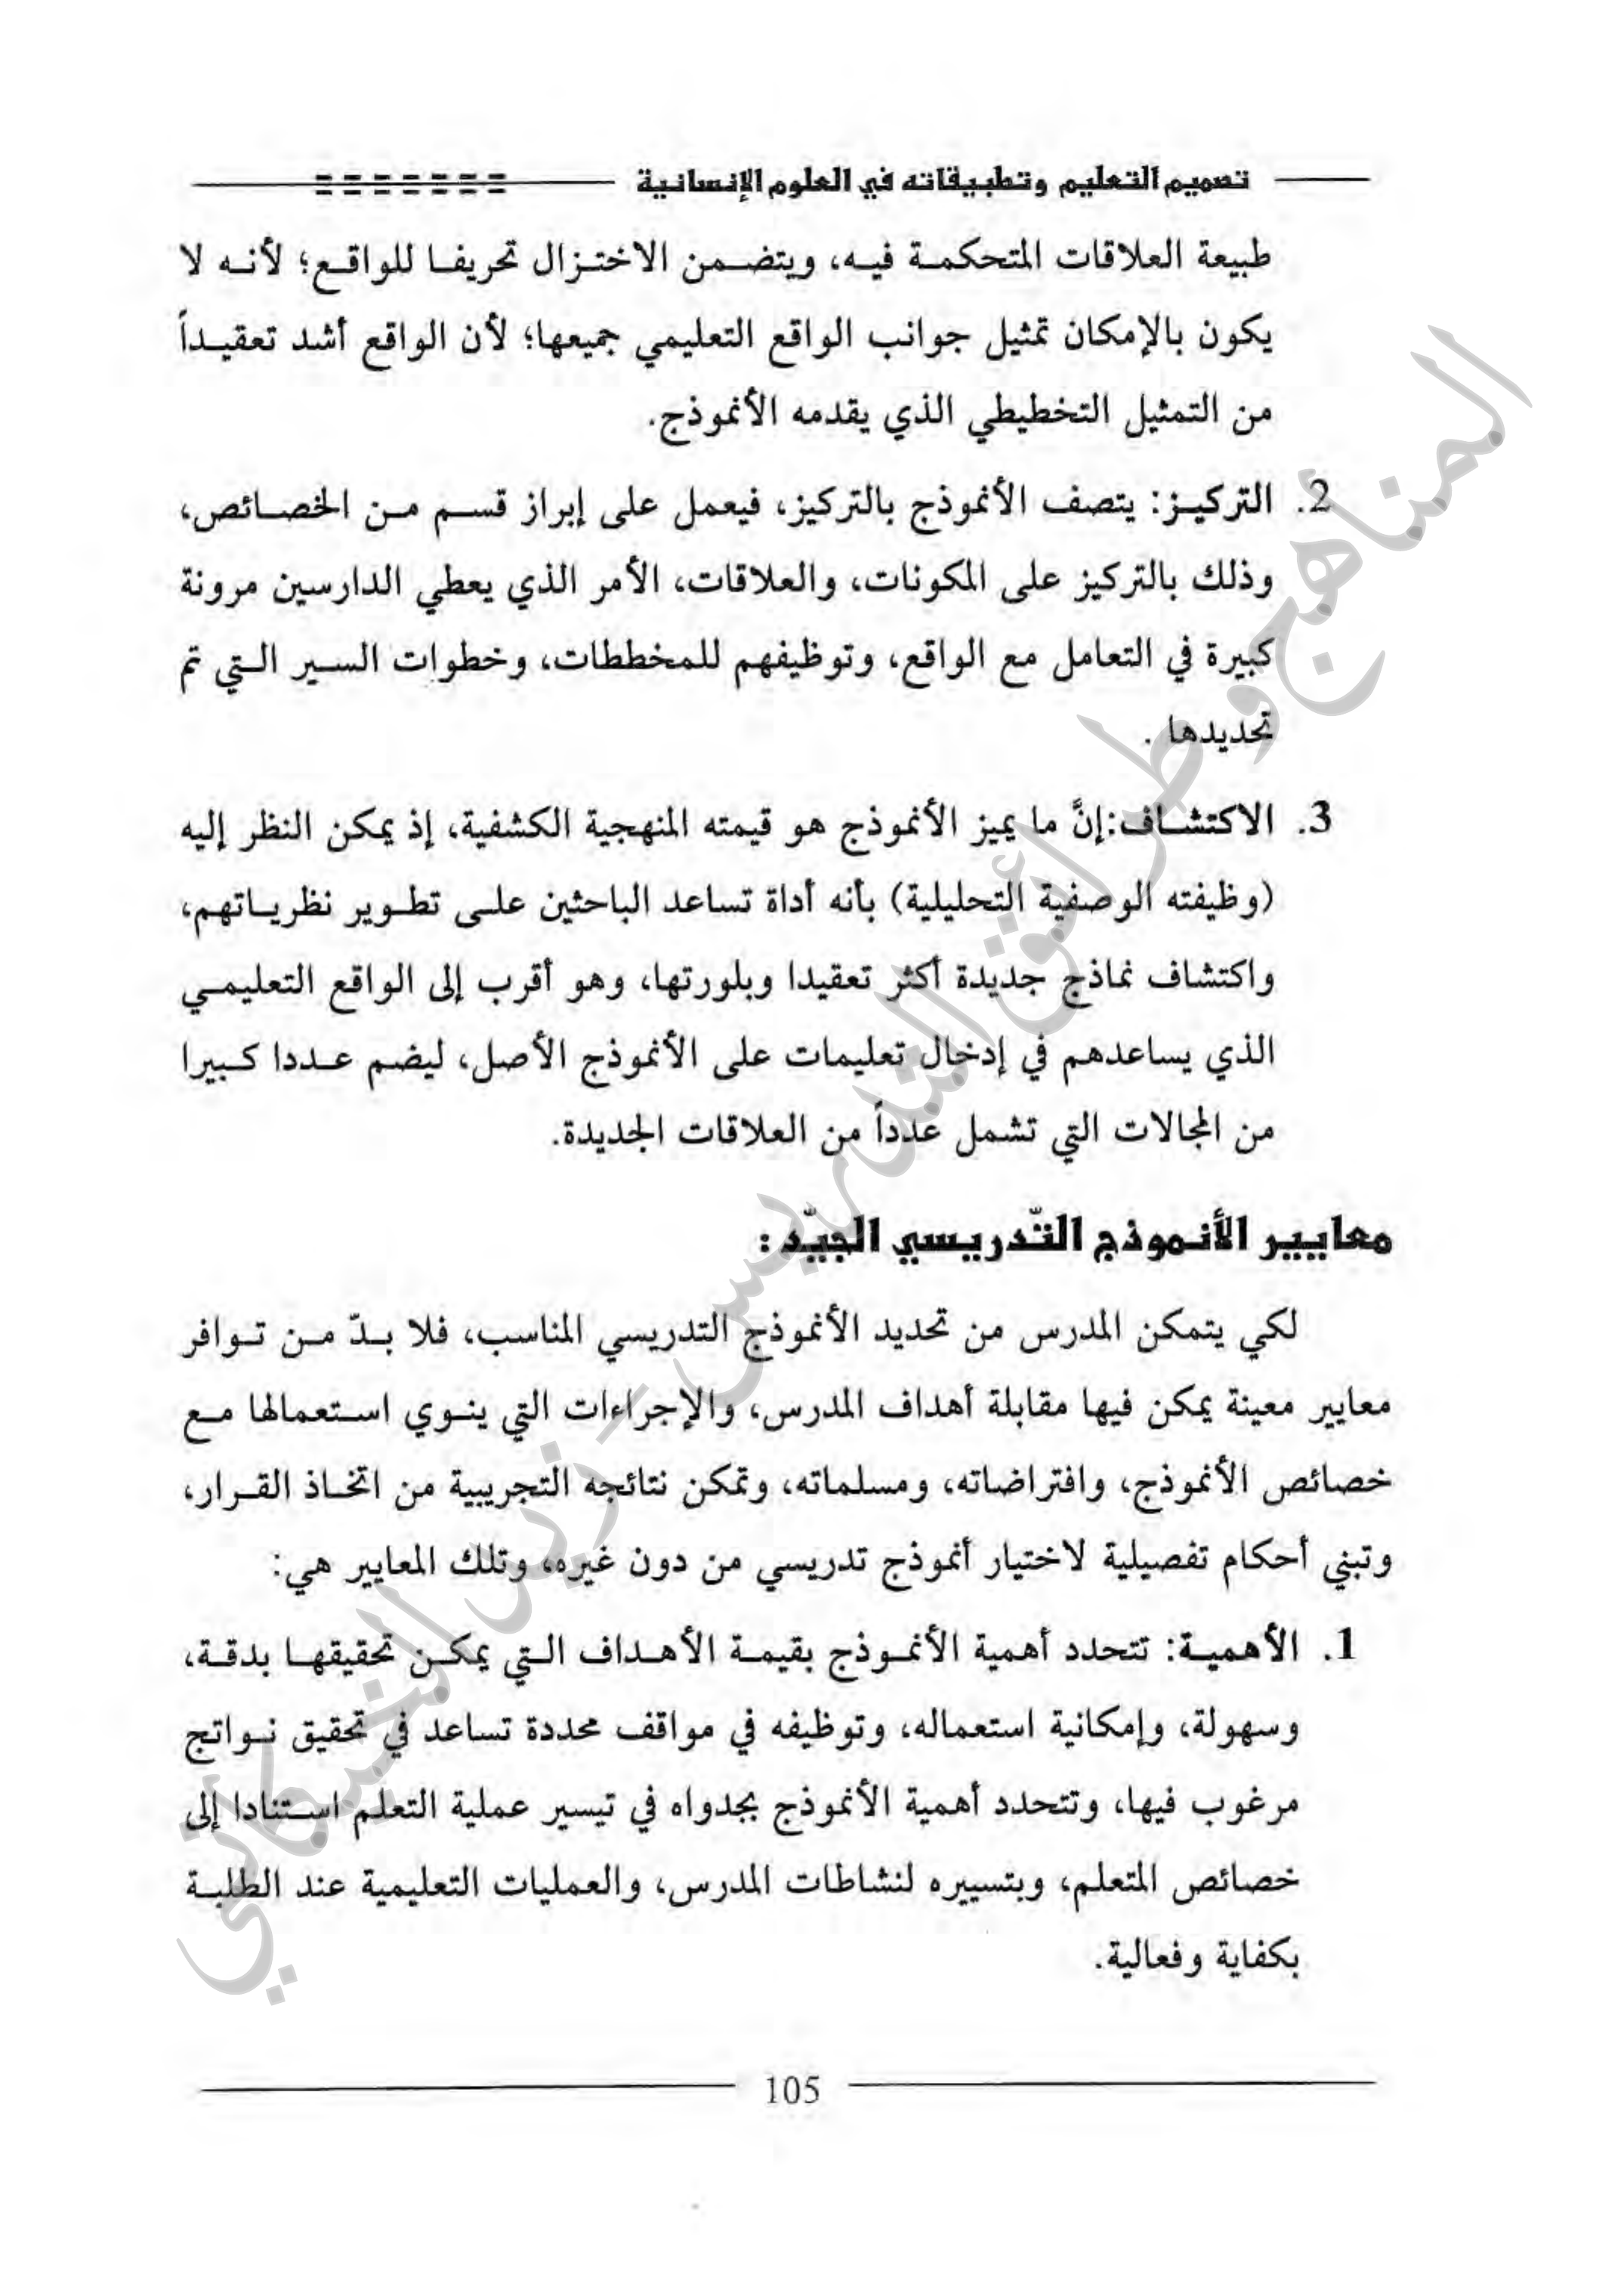 تصميم التعليم وتطبيقاته في العلوم الإنسانية
طبيعة العلاقات المتحكمة فيه، ويتضمن الاختزال تحريفا للواقع؛ لأنه لا
يكون بالإمكان تمثيل جوانب الواقع التعليمي جميعها؛ لأن الواقع أشد تعقيداً
من التمثيل التخطيطي الذي يقدمه الأنموذج.
2. التركيز: يتصف الأنموذج بالتركيز، فيعمل على إبراز قسم من الخصائص،
وذلك بالتركيز على المكونات، والعلاقات، الأمر الذي يعطي الدارسين مرونة
كبيرة في التعامل مع الواقع، وتوظيفهم للمخططات، وخطوات السير التي تم
تحديدها .
3. الاكتشاف:إنَّ ما يميز الأنموذج هو قيمته المنهجية الكشفية، إذ يمكن النظر إليه
(وظيفته الوصفية التحليلية) بأنه أداة تساعد الباحثين على تطوير نظرياتهم،
واكتشاف نماذج جديدة أكثر تعقيدا وبلورتها، وهو أقرب إلى الواقع التعليمي
الذي يساعدهم في إدخال تعليمات على الأنموذج الأصل، ليضم عددا كبيرا
من المجالات التي تشمل عدداً من العلاقات الجديدة.
معايير الأنموذج التّدريسي الجيّد :
لكي يتمكن المدرس من تحديد الأنموذج التدريسي المناسب، فلا بدّ من توافر
معايير معينة يمكن فيها مقابلة أهداف المدرس، والإجراءات التي ينوي استعمالها مع
خصائص الأنموذج، وافتراضاته، ومسلماته، وتمكن نتائجه التجريبية من اتخاذ القرار،
وتبني أحكام تفصيلية لاختيار أنموذج تدريسي من دون غيره، وتلك المعايير هي:
1. الأهمية: تتحدد أهمية الأنموذج بقيمة الأهداف التي يمكن تحقيقها بدقة،
وسهولة، وإمكانية استعماله، وتوظيفه في مواقف محددة تساعد في تحقيق نواتج
مرغوب فيها، وتتحدد أهمية الأنموذج بجدواه في تيسير عملية التعلم استنادا إلى
خصائص المتعلم، وبتسييره لنشاطات المدرس، والعمليات التعليمية عند الطلبة
بكفاية وفعالية.
105
المناهج وطرائق التدريس - زيد الخيكاني